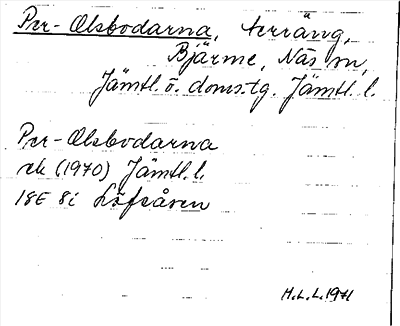 Per-Olsbodarna, terräng,
Bjärme, Näs sn,
Jämtl. ö. doms.tg. Jämtl. l.
Per-Olsbodarna
ek (1970) Jämtl. l.
18E 8i Löfsåsen
H.L.L. 1971